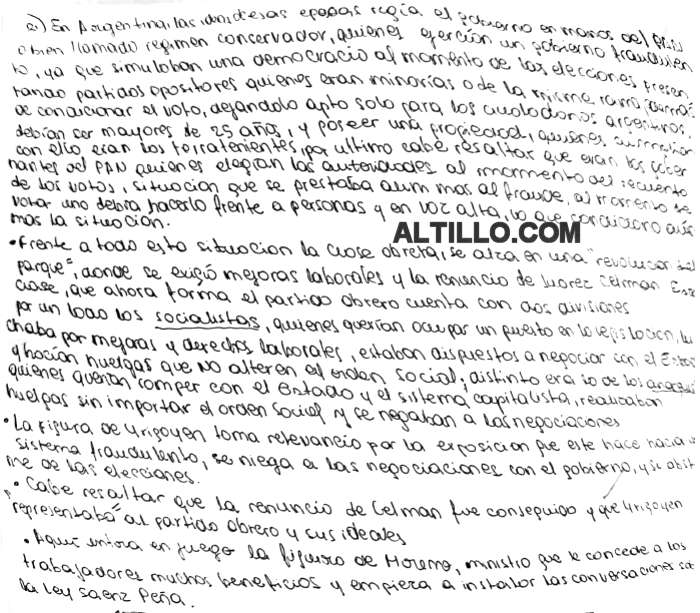 a) En Argentina, las décadas épocas regía el gobierno en manos del PAN
o bien llamado regimen conservador, quienes ejercían un gobierno fraudulen
to, ya que simulaban una democracia al momento de las elecciones presen
tando partidos opositores quienes eran minorías o de la misma rama
de condicionar el voto, dejandolo apto solo para los ciudadanos argentinos,
debían ser mayores de 25 años, y poseer una propiedad, quienes
con ello eran los terratenientes, por ultimo cabe resaltar que eran los gober
nantes del PAN quienes elegían las autoridades al momento del recuento
de los votos, situacion que se prestaba aum mas al fraude, al momento de
votar uno debia hacerlo frente a personas y en voz alta, lo que condiciono aún
mas la situacion.
ALTILLO.COM
• Frente a toda esta situacion la clase obrera, se alza en una "revolucion del
parque", donde se exigió mejoras laborales y la renuncia de Juarez Celman. Esta
clase, que ahora forma el partido obrero cuenta con dos divisiones
por un lado los socialistas, quienes querían ocupar un puesto en la legislacion, lu
chaba por mejoras y derechos laborales, estaban dispuestos a negociar con el Estado
y hacían huelgas que no alteren el orden social; distinto era lo de los
quienes querían romper con el Entado y el sistema capitalista, realizaban
huelgas sin importar el orden social y se negaban a las negociaciones
• La figura de Yrigoyen toma relevancia por la exposicion que este hace hacia el
sistema fraudulento, se niega a las negociaciones con el gobierno, y se abst
me de las elecciones.
• Cabe resaltar que la renuncia de Celman fue conseguida y que Yrigoyen
representaba al partido obrero y sus ideales
• Aqui entra en juego la figura de Moreno, ministro que le concede a los
trabajadores muchos beneficios y empieza a instalar las conversaciones sob
la ley Saenz Peña.